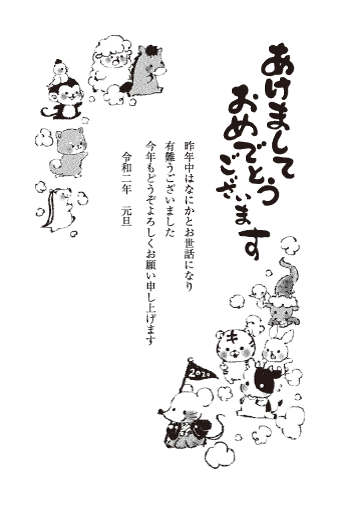 あけまして
おめでとう
ございます
昨年中はなにかとお世話になり
有難うございました
今年もどうぞよろしくお願い申し上げます
令和二年　元旦
2020